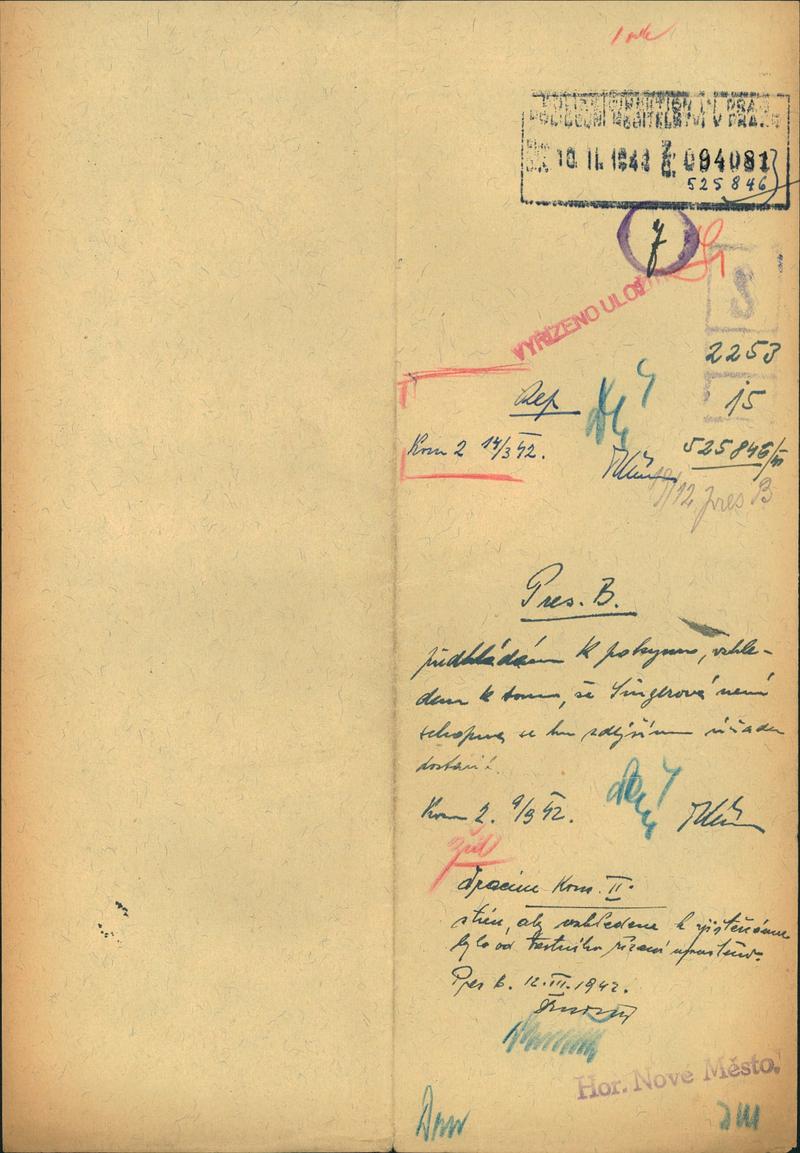 POLIZEIDIREKTION IN PRAG
POLICEJNÍ ŘEDITELSTVÍ V PRAZE
10 II. 1942 094081
525846
VYŘÍZENO ULOŽIT
S
2253
15
Rep
Kom 2 14/3 42.
525846/41
19/12 pres B
Pres. B.
předkládám k pokynu, vzhle-
dem k tomu, že Singerová není
schopna se ku zdejšímu úřadu
dostavit.
Kom 2. 9/3 42.
žid
Vracím Kom. II.
s tím, aby vzhledem k zjištěnému
bylo od trestního řízení upuštěno.
Pres B. 12.III.1942.
Hor. Nové Město.